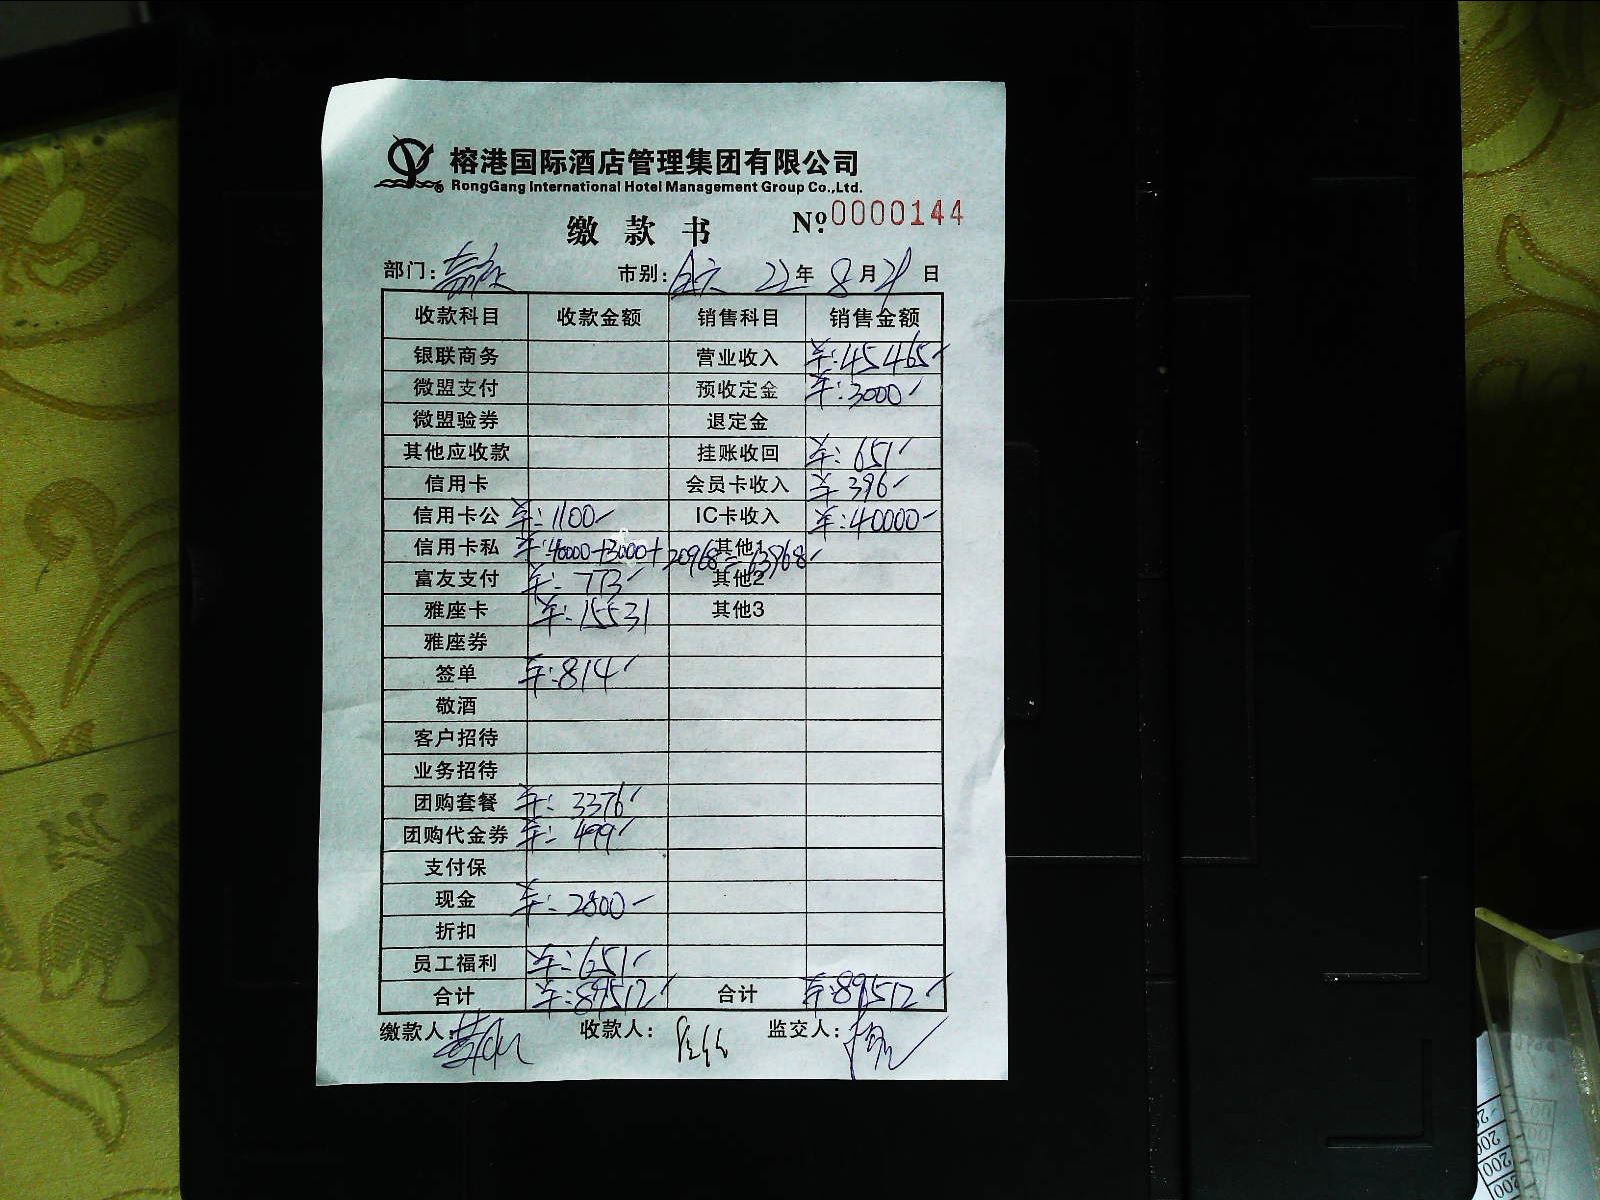 榕港国际酒店管理集团有限公司
RongGang International Hotel Management Group Co.,Ltd.
缴款书 №:0000144
部门: 市别: 22年8月21日
收款科目 收款金额 销售科目 销售金额
银联商务 营业收入 ¥:45465
微盟支付 预收定金 ¥:3000
微盟验券 退定金
其他应收款 挂账收回 ¥:651
信用卡 会员卡收入 ¥396
信用卡公 ¥:1100 IC卡收入 ¥:40000
信用卡私 ¥:40000+3000+20968=63968 其他1
富友支付 ¥:773 其他2
雅座卡 ¥:15531 其他3
雅座券
签单 ¥:814
敬酒
客户招待
业务招待
团购套餐 ¥:3376
团购代金券 ¥:499
支付保
现金 ¥:2800
折扣
员工福利 ¥:651
合计 ¥:89512 合计 ¥:89512
缴款人: 收款人: 监交人: